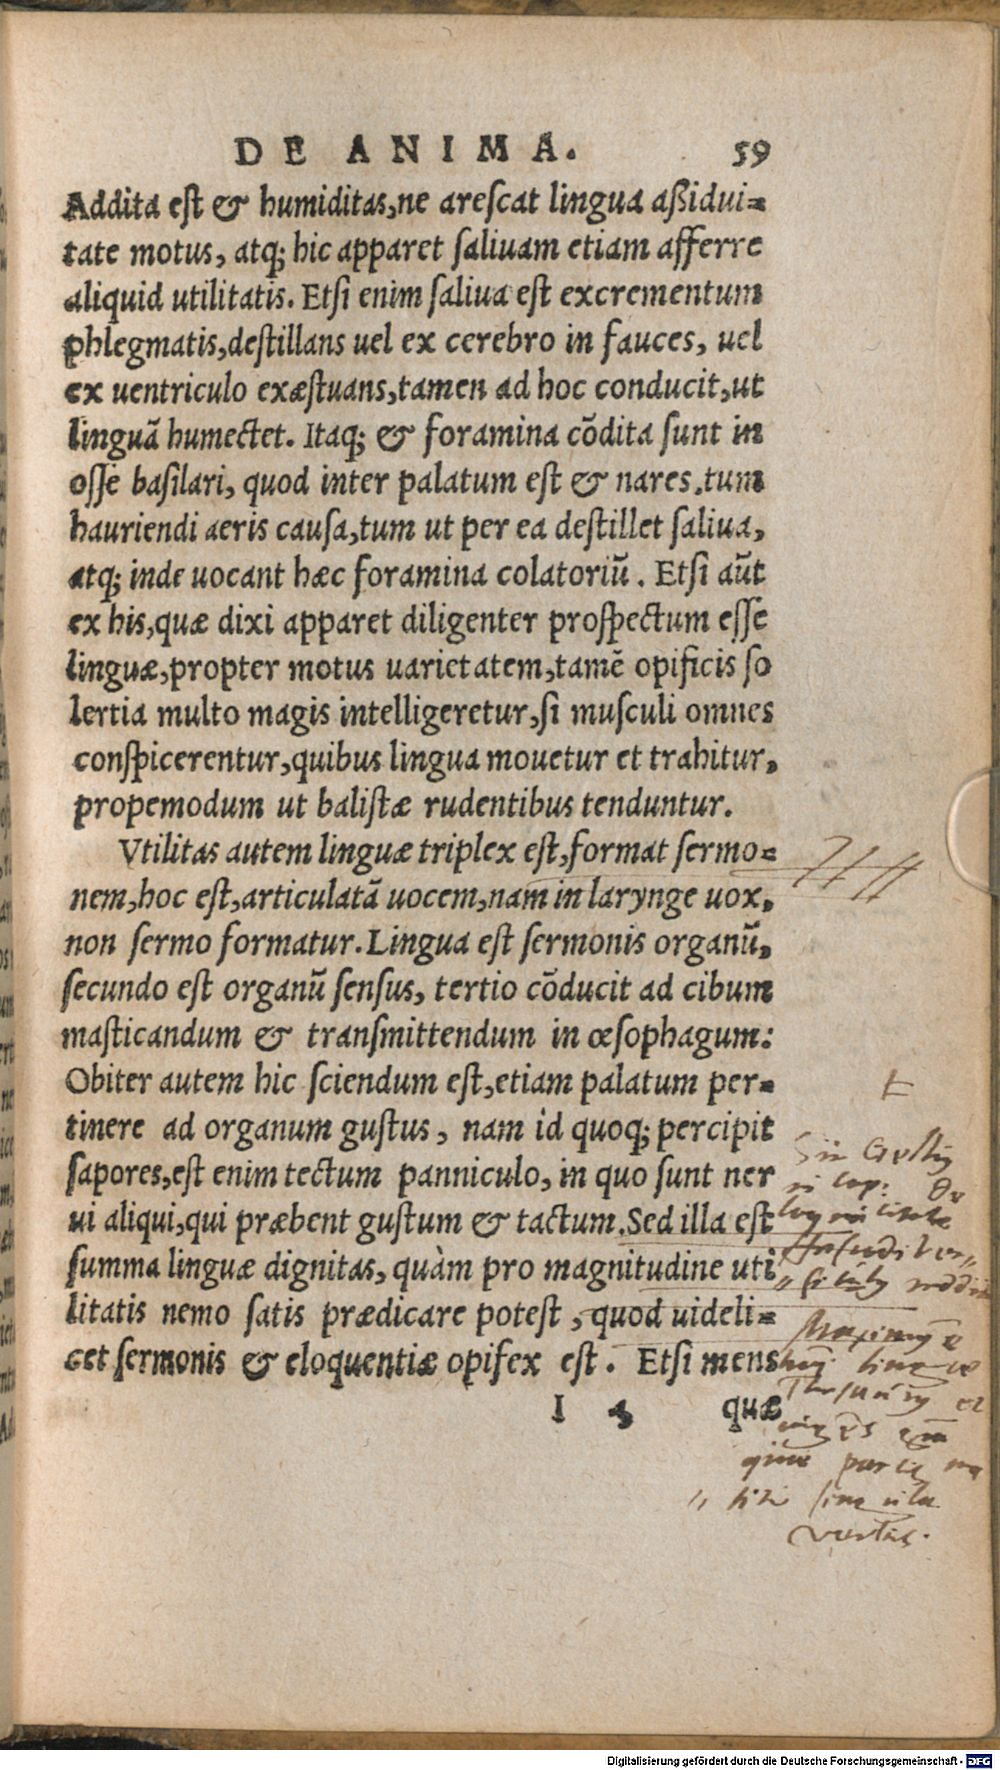 DE ANIMA. 59
Addita est & humiditas, ne arescat lingua aßidui=
tate motus, atq; hic apparet saliuam etiam afferre
aliquid utilitatis. Etsi enim saliua est excrementum
phlegmatis, destillans uel ex cerebro in fauces, uel
ex uentriculo exæstuans, tamen ad hoc conducit, ut
linguã humectet. Itaq; & foramina cõdita sunt in
osse basilari, quod inter palatum est & nares, tum
hauriendi aeris causa, tum ut per ea destillet saliua,
atq; inde uocant hæc foramina colatoriũ. Etsi aũt
ex his, quæ dixi apparet diligenter prospectum esse
linguæ, propter motus uarietatem, tamẽ opificis so
lertia multo magis intelligeretur, si musculi omnes
conspicerentur, quibus lingua mouetur et trahitur,
propemodum ut balistæ rudentibus tenduntur.
Vtilitas autem linguæ triplex est, format sermo=
nem, hoc est, articulatã uocem, nam in larynge uox,
non sermo formatur. Lingua est sermonis organũ,
secundo est organũ sensus, tertio cõducit ad cibum
masticandum & transmittendum in œsophagum:
Obiter autem hic sciendum est, etiam palatum per=
tinere ad organum gustus, nam id quoq; percipit
sapores, est enim tectum panniculo, in quo sunt ner
ui aliqui, qui præbent gustum & tactum. Sed illa est
summa linguæ dignitas, quàm pro magnitudine uti
litatis nemo satis prædicare potest, quod uideli=
cet sermonis & eloquentiæ opifex est. Etsi mens
I 3 quæ
Digitalisierung gefördert durch die Deutsche Forschungsgemeinschaft - DFG